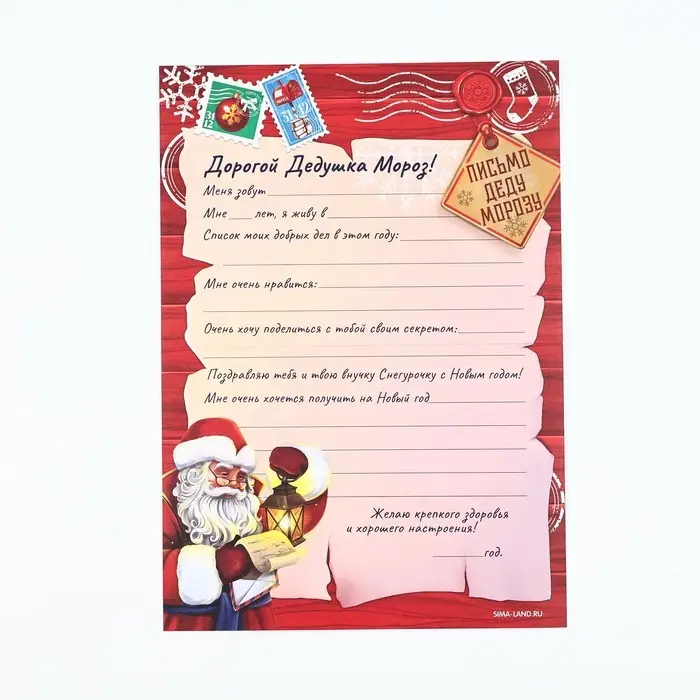 31
12
ПОЧТА
31 12
ПИСЬМО
ДЕДУ
МОРОЗУ
Дорогой Дедушка Мороз!
Меня зовут
Мне ____ лет, я живу в
Список моих добрых дел в этом году:
Мне очень нравится:
Очень хочу поделиться с тобой своим секретом:
Поздравляю тебя и твою внучку Снегурочку с Новым годом!
Мне очень хочется получить на Новый год
Желаю крепкого здоровья
и хорошего настроения!
______ год.
SIMA-LAND.RU